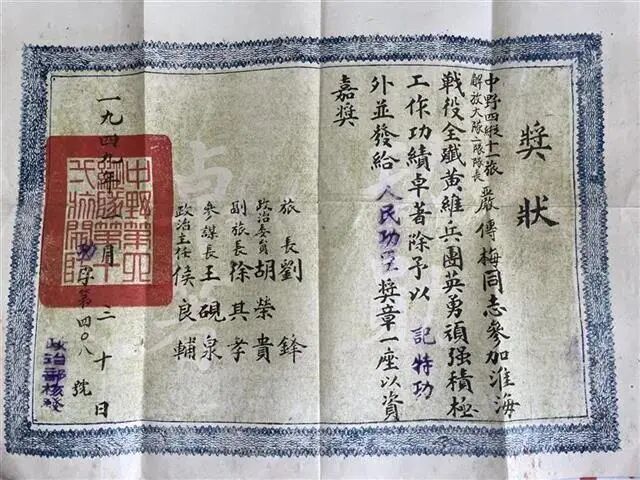 獎狀
中野四縱十一旅
解放大隊一隊隊長
嚴傳梅同志參加淮海
戰役全殲黃維兵團英勇頑强積極
工作功績卓著除予以 記特功
外並發給 人民功臣 獎章一座以資
嘉獎
旅長劉鋒
政治委員胡榮貴
副旅長徐其孝
參謀長王硯泉
政治主任侯良輔
一九四九年 月三十日
功字第四〇八號
政治部核發